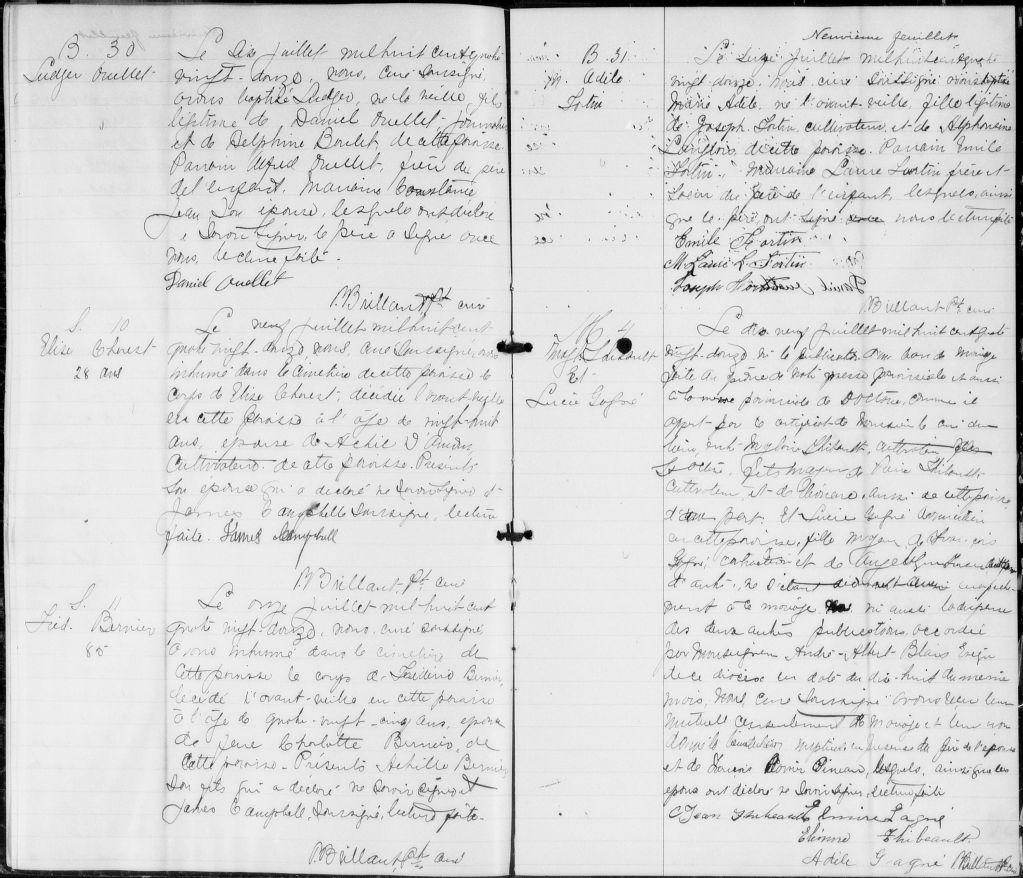 B. 30
Ludger Ouellet
Le dix juillet mil huit cent quatre
vingt-douze, nous, curé soussigné,
avons baptisé Ludger, né la veille, fils
légitime de Daniel Ouellet journalier
et de Delphine Boulet, de cette paroisse
Parrain Alfred Ouellet, frère du père
de l'enfant, Marraine Constance
Jean son épouse, lesquels ont déclaré
savoir signer, le père a signé avec
nous, lecture faite.
Daniel Ouellet
Brillant Ptre curé
S. 10
Elise Chorest
28 ans
Le neuf juillet mil huit cent
quatre vingt-douze, nous, curé soussigné, avons
inhumé dans le cimetière de cette paroisse le
corps de Elise Chorest, décédée l'avant veille
en cette paroisse à l'âge de vingt-huit
ans, épouse de Achil D'Amours
cultivateur de cette paroisse. Présents
son époux qui a déclaré ne savoir signer et
James Campbell soussigné, lecture
faite. James Campbell
Brillant Ptre curé
S. 11
Fréd. Bernier
85
Le onze juillet mil huit cent
quatre vingt-douze, nous, curé soussigné,
avons inhumé dans le cimetière de
cette paroisse le corps de Frédéric Bernier
décédé l'avant-veille en cette paroisse
à l'âge de quatre-vingt-cinq ans, époux
de feue Charlotte Bernier, de
cette paroisse. Présents Achille Bernier
son fils qui a déclaré ne savoir signer et
James Campbell, soussigné, lecture faite.
Brillant, Ptre curé
Neuvième feuillet
B. 31
M. Adile
Fortin
Le onze juillet mil huit cent quatre
vingt douze, nous, curé soussigné avons baptisé
Marie Adile, née l'avant-veille, fille légitime
de Joseph Fortin, cultivateur, et de Alphonsine
Langlois de cette paroisse. Parrain Emile
Fortin, Marraine Laure Fortin frère et
soeur du père de l'enfant, lesquels, ainsi
que le père, ont signé avec nous lecture faite
Emile Fortin
M. Laure L. Fortin
Joseph Fortin
Brillant Ptre curé
M 4
Thibault
Et
Lucie Gagné
Le dix neuf juillet mil huit cent quatre
vingt-douze vu la publication d'un ban de mariage
faite au prône de notre messe paroissiale et aussi
à la messe paroissiale de St Octave, comme il
appert par le certificat de Monsieur le curé du
lieu, entre Thibault, cultivateur de
St Octave, fils majeur de Thibault
cultivateur, et de aussi de cette paroisse,
d'une part. Et Lucie Gagné domiciliée
en cette paroisse, fille majeure de François
Gagné, cultivateur et de Angel
d'autre, ne s'étant découvert aucun empêche-
ment à ce mariage vu aussi la dispense
des deux autres publications accordée
par Monseigneur André-Albert Blais Evêque
de ce diocèse en date du dix-huit du même
mois, nous, curé soussigné avons reçu leur
mutuel consentement de mariage et leur avons
donné la bénédiction nuptiale en présence du père de l'épouse
et de François Pineau, lesquels, ainsi que les
époux ont déclaré ne savoir signer, lecture faite
Jean Thibeault Elmire Gagné
Etienne Thibeault
Adèle Gagné Brillant Ptre